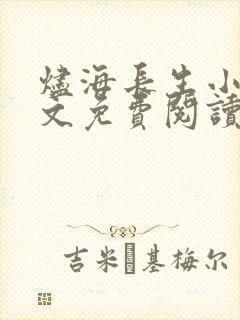 燼海長生小
文免費閱讀
吉米·基梅尔